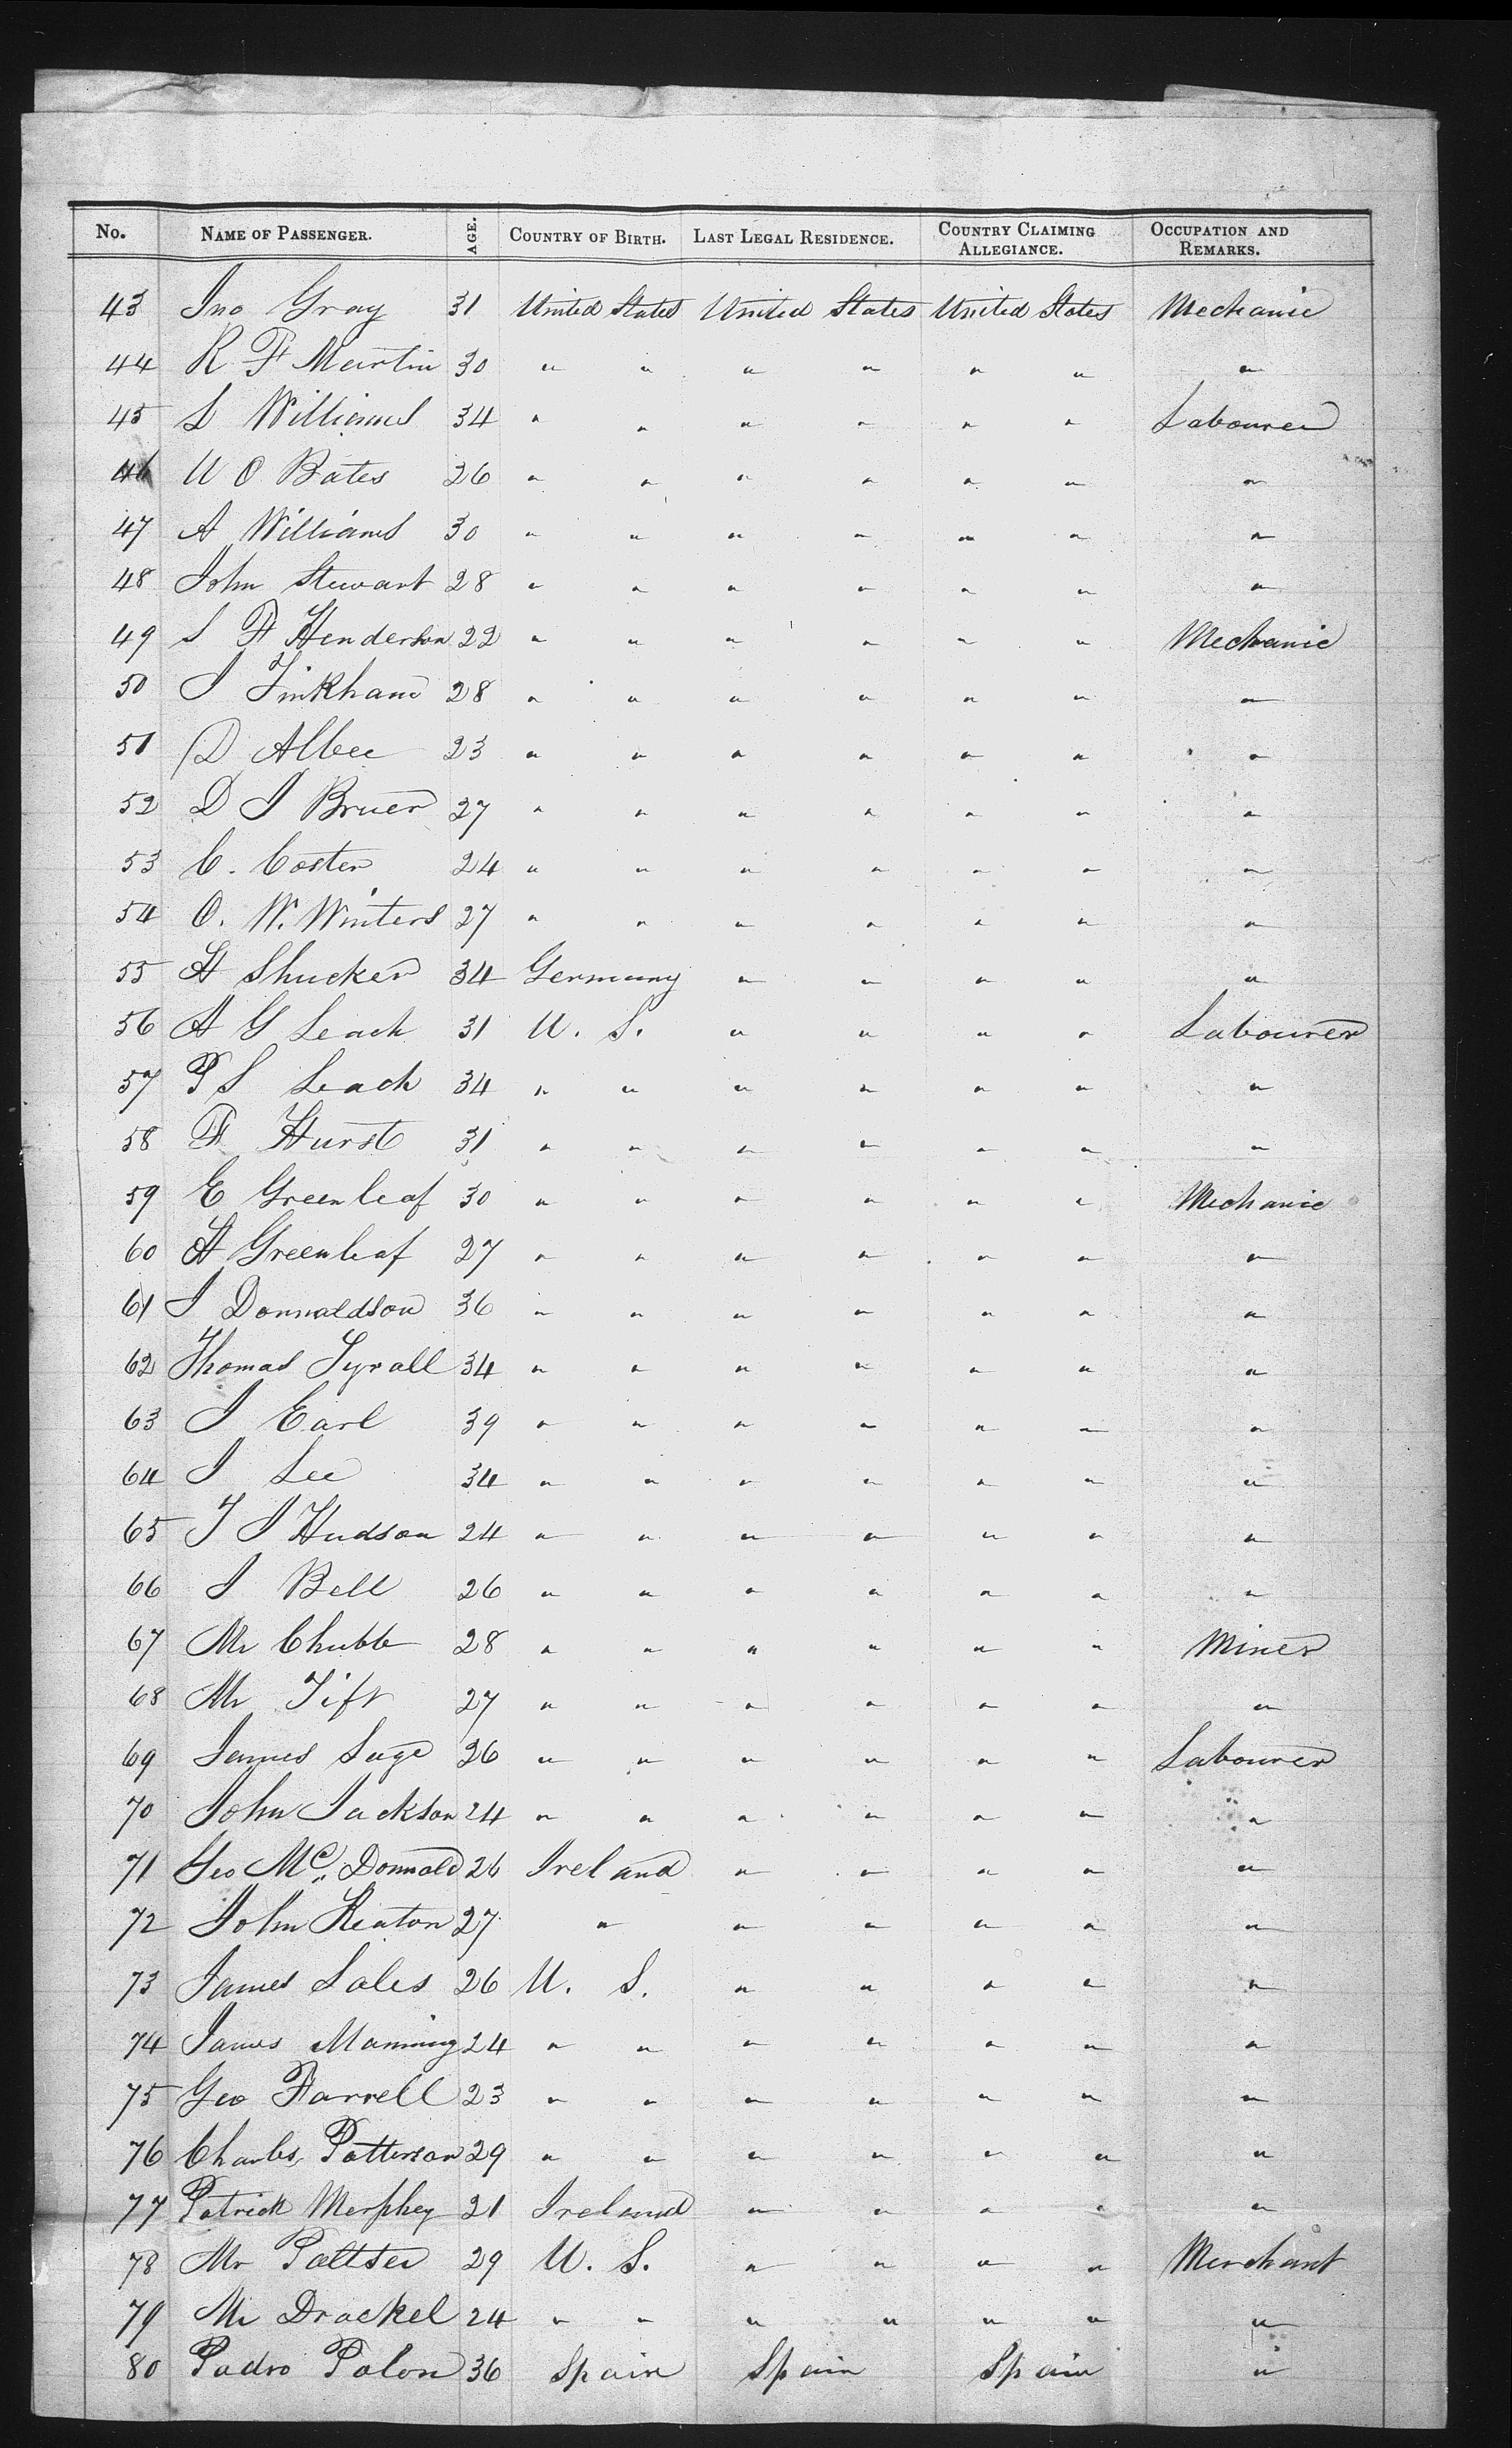 No. NAME OF PASSENGER. AGE. COUNTRY OF BIRTH. LAST LEGAL RESIDENCE. COUNTRY CLAIMING ALLEGIANCE. OCCUPATION AND REMARKS.
43 Jno Gray 31 United States United States United States Mechanic
44 R F Martin 30 " " " " " " "
45 L Williams 34 " " " " " " Labourer
46 W O Bates 26 " " " " " " "
47 A Williams 30 " " " " " " "
48 John Stewart 28 " " " " " " "
49 S F Henderson 22 " " " " " " Mechanic
50 J Tinkham 28 " " " " " " "
51 D Albee 23 " " " " " " "
52 D J Bruer 27 " " " " " " "
53 C. Coster 24 " " " " " " "
54 O. W. Winters 27 " " " " " " "
55 H Shucker 34 Germany " " " " "
56 A G Leach 31 U. S. " " " " Labourer
57 P S Leach 34 " " " " " " "
58 F Hurst 31 " " " " " " "
59 E Greenleaf 30 " " " " " " Mechanic
60 H Greenleaf 27 " " " " " " "
61 J Donnaldson 36 " " " " " " "
62 Thomas Tyrall 34 " " " " " " "
63 J Earl 39 " " " " " " "
64 J Lee 34 " " " " " " "
65 T J Hudson 24 " " " " " " "
66 J Bell 26 " " " " " " "
67 Mr Chubb 28 " " " " " " Miner
68 Mr Tift 27 " " " " " " "
69 James Sage 26 " " " " " " Labourer
70 John Jackson 24 " " " " " " "
71 Geo Mc Donnald 26 Ireland " " " " "
72 John Keaton 27 " " " " " "
73 James Sales 26 U. S. " " " " "
74 James Manning 24 " " " " " " "
75 Geo Farrell 23 " " " " " " "
76 Charles Patterson 29 " " " " " " "
77 Patrick Merphey 21 Ireland " " " " "
78 Mr 29 U. S. " " " " Merchant
79 Mr Drackel 24 " " " " " " "
80 Padro Polon 36 Spain Spain Spain "